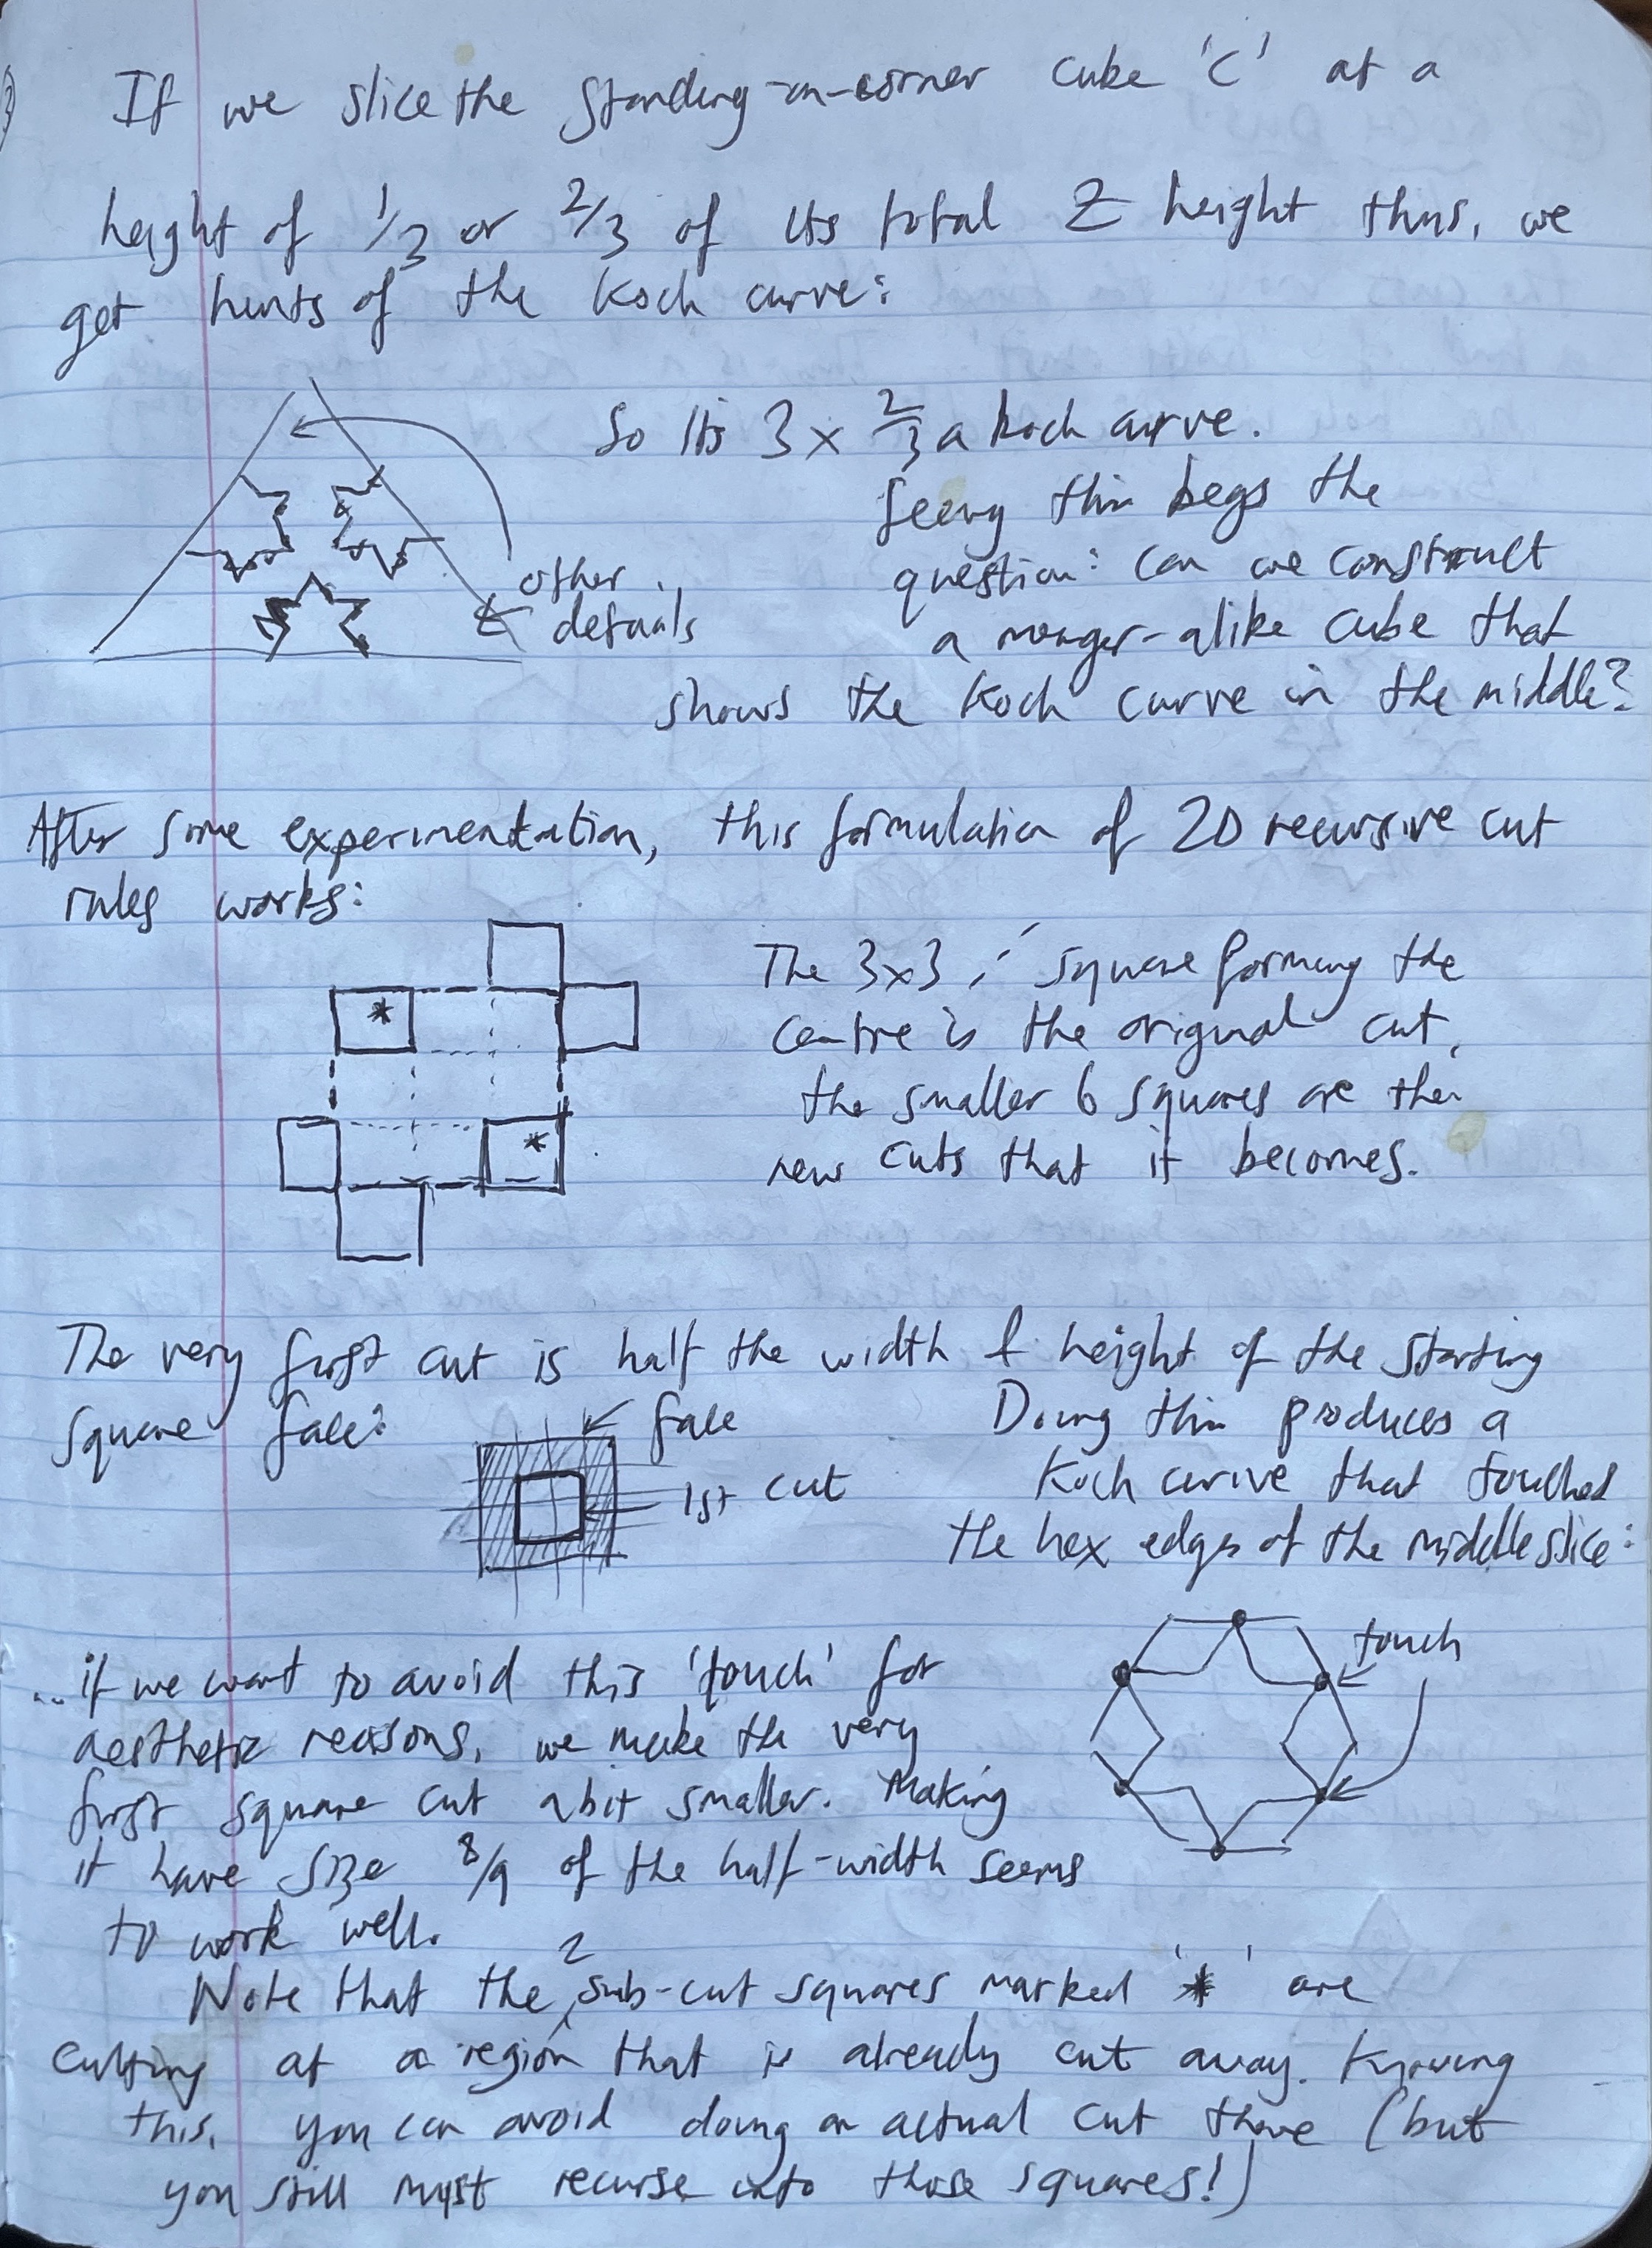 3)
If we slice the standing-on-corner cube 'C' at a
height of 1/3 or 2/3 of its total Z height thus, we
get hints of the Koch curve:
So its 3 x 2/3 a Koch curve.
Seeing this begs the
question: can we construct
a menger-alike cube that
shows the Koch curve in the middle?
other
details
After some experimentation, this formulation of 2D recursive cut
rules works:
*
*
The 3x3 square forming the
centre is the original cut,
the smaller 6 squares are the
new cuts that it becomes.
The very first cut is half the width & height of the starting
square face:
face
1st cut
Doing this produces a
Koch curve that touches
the hex edges of the middle slice:
touch
... if we want to avoid this 'touch' for
aesthetic reasons, we make the very
first square cut a bit smaller. Making
it have size 8/9 of the half-width seems
to work well.
Note that the 2 sub-cut squares marked '*' are
cutting at a region that is already cut away. Knowing
this, you can avoid doing an actual cut there (but
you still must recurse into those squares!)